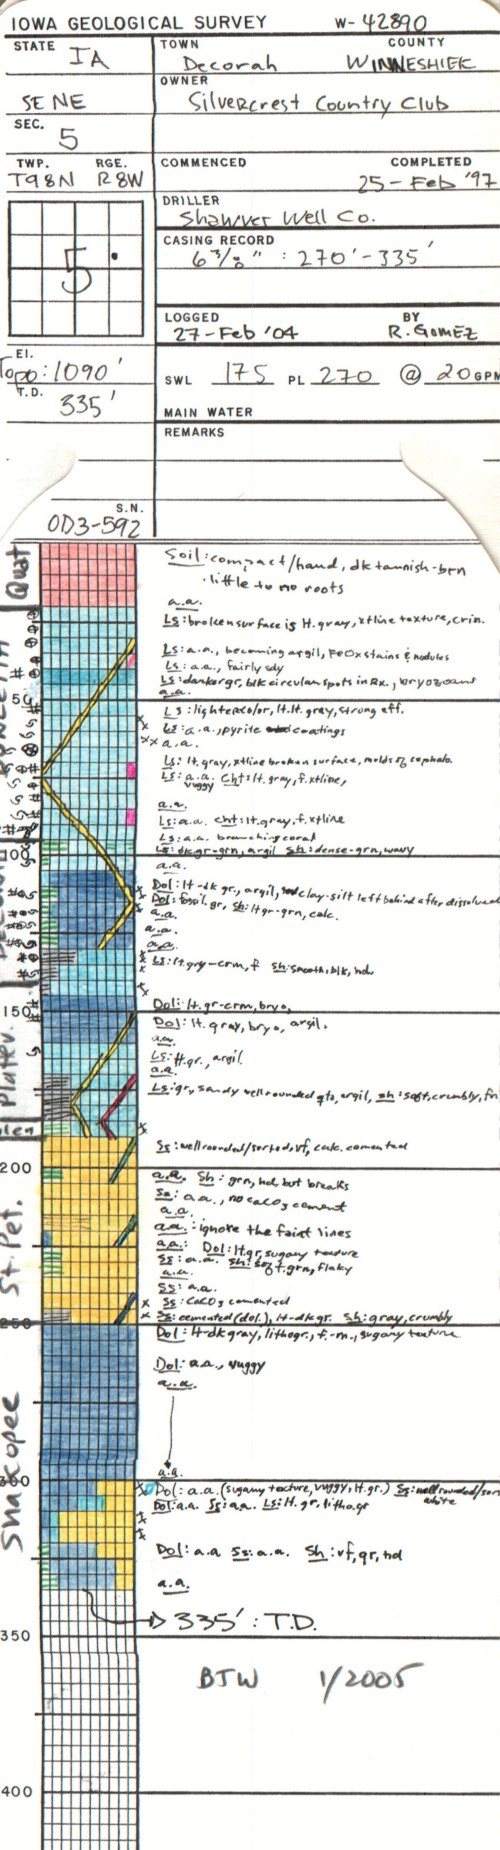 IOWA GEOLOGICAL SURVEY W- 42890
STATE IA TOWN Decorah COUNTY WINNESHIEK
OWNER
SE NE Silvercrest Country Club
SEC. 5
TWP. RGE. COMMENCED COMPLETED
T98N R8W 25-Feb '97
DRILLER
Shawver Well Co.
CASING RECORD
6 3/8" : 270'-335'
5
LOGGED BY
27-Feb '04 R. GOMEZ
El.
Topo: 1090'
SWL 175 PL 270 @ 20 GPM
T.D. 335'
MAIN WATER
REMARKS
S.N.
OD3-592
Quat
Soil: compact/hard, dk tannish-brn
little to no roots
a.a.
Ls: broken surface is lt. gray, xtline texture, crin.
Ls: a.a., becoming argil, FeOx stains & nodules
Ls: a.a., fairly sdy
Ls: darker gr, blk circular spots in Rx., bryozoans
a.a.
50
Ls: lighter color, lt. lt. gray, strong eff.
Ls: a.a., pyrite coatings
a.a.
Ls: lt. gray, xtline broken surface, molds of cephalo.
Ls: a.a. cht: lt. gray, f. xtline,
vuggy
a.a.
Ls: a.a. cht: lt. gray, f. xtline
Ls: a.a. branching coral
Ls: dk gr-grn, argil sh: dense-grn, wavy
100
a.a.
Dol: lt-dk gr., argil, clay-silt left behind after dissolved
Dol: fossil. gr, sh: lt gr-grn, calc.
a.a.
a.a.
a.a.
Ls: lt. gry-crm, f sh: smooth, blk, hd.
150
Dol: lt. gr-crm, bryo,
Dol: lt. gray, bryo, argil.
a.a.
Platev.
Ls: lt. gr., argil
a.a.
Ls: gr, sandy well rounded qtz, argil, sh: soft, crumbly, fri
Glen
Ss: well rounded/sorted, vf, calc. cemented
200
a.a. Sh: grn, hd, but breaks
Ss: a.a., no CaCO3 cement
a.a.
St. Pet.
a.a.: ignore the faint lines
a.a.: Dol: lt. gr, sugary texture
Ss: a.a. sh: soft, grn, flaky
a.a.
Ss: a.a.
Ss: CaCO3 cemented
Ss: cemented (dol.), lt-dk gr. Sh: gray, crumbly
250
Dol: lt-dk gray, lithogr., f.-m., sugary texture
Dol: a.a., vuggy
a.a.
Shakopee
a.a.
300
Dol: a.a. (sugary texture, vuggy, lt. gr.) Ss: well rounded/sor
white
Dol: a.a. Ss: a.a. Ls: lt. gr, litho.gr
Dol: a.a Ss: a.a. Sh: vf, gr, hd
a.a.
335': T.D.
350
BJW 1/2005
400